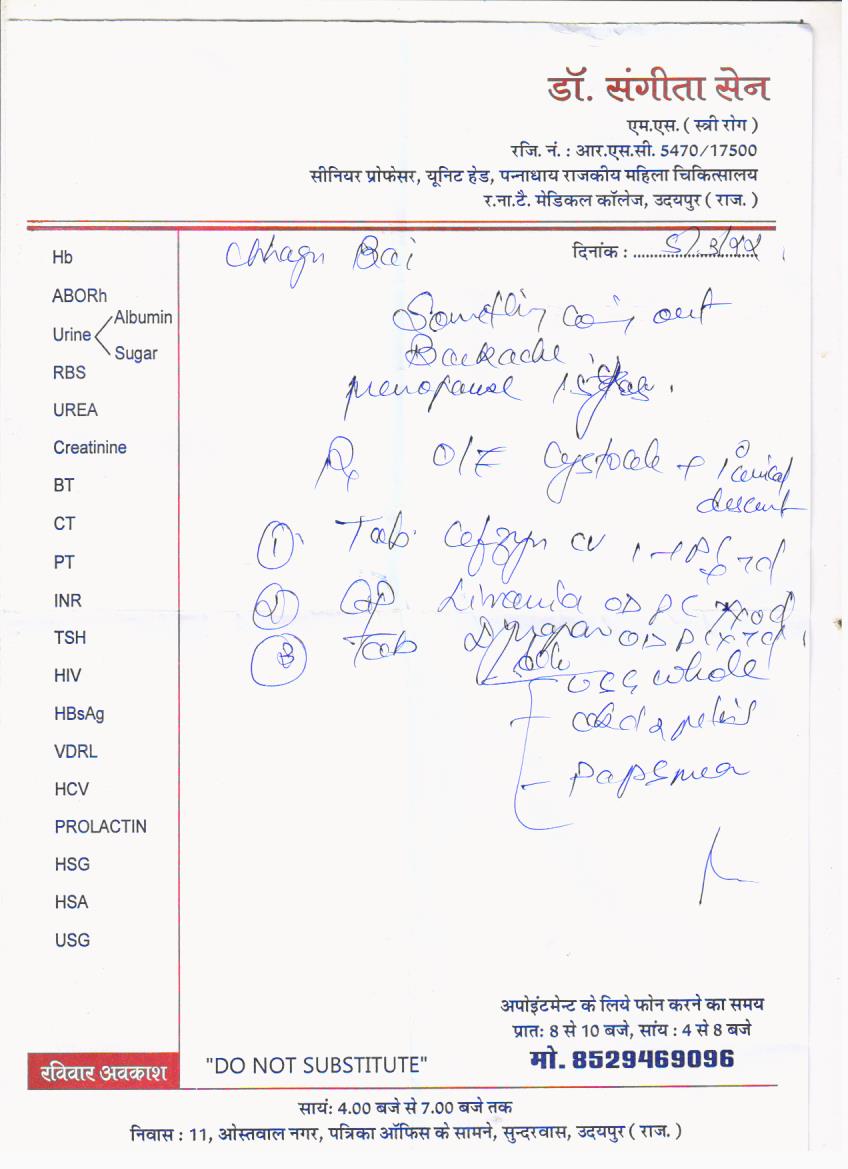 डॉ. संगीता सेन
एम.एस. ( स्त्री रोग )
रजि. नं. : आर.एस.सी. 5470/17500
सीनियर प्रोफेसर, यूनिट हेड, पन्नाधाय राजकीय महिला चिकित्सालय
र.ना.टै. मेडिकल कॉलेज, उदयपुर ( राज. )
Chhagn Bai
दिनांक :
Hb
ABORh
Urine
Albumin
Sugar
RBS
UREA
Creatinine
BT
CT
PT
INR
TSH
HIV
HBsAg
VDRL
HCV
PROLACTIN
HSG
HSA
USG
out
Backache
Rx O/E Cystocele +
descent
1 Tab. CV
2 OD PC
3 Tab OD PC
USG whole
abd & pelvis
- Papsmear
अपोइंटमेन्ट के लिये फोन करने का समय
प्रातः 8 से 10 बजे, सांय : 4 से 8 बजे
मो. 8529469096
रविवार अवकाश
"DO NOT SUBSTITUTE"
सायं: 4.00 बजे से 7.00 बजे तक
निवास : 11, ओस्तवाल नगर, पत्रिका ऑफिस के सामने, सुन्दरवास, उदयपुर ( राज. )